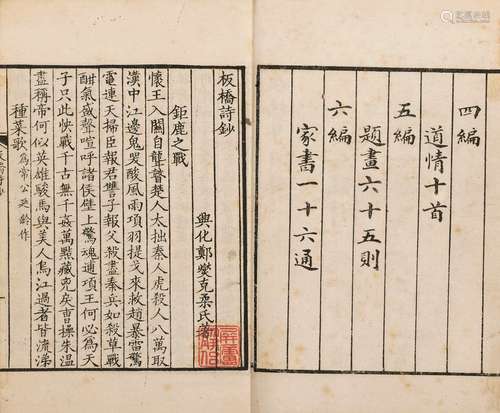 四編
道情十首
五編
題畫六十五則
六編
家書一十六通
板橋詩鈔
興化鄭燮克柔氏著
鉅鹿之戰
懷王入關自聾瞽楚人太拙秦人虎殺人八萬取
漢中江邊鬼哭酸風雨項羽提戈來救趙暴雷驚
電連天掃臣報君讐子報父殺盡秦兵如殺草戰
酣氣盛聲喧呼諸侯壁上驚魂逋項王何必為天
子只此快戰千古無千姦萬黠藏兇戾曹操朱溫
盡稱帝何似英雄駿馬與美人烏江過者皆流涕
種菜歌為常公延齡作